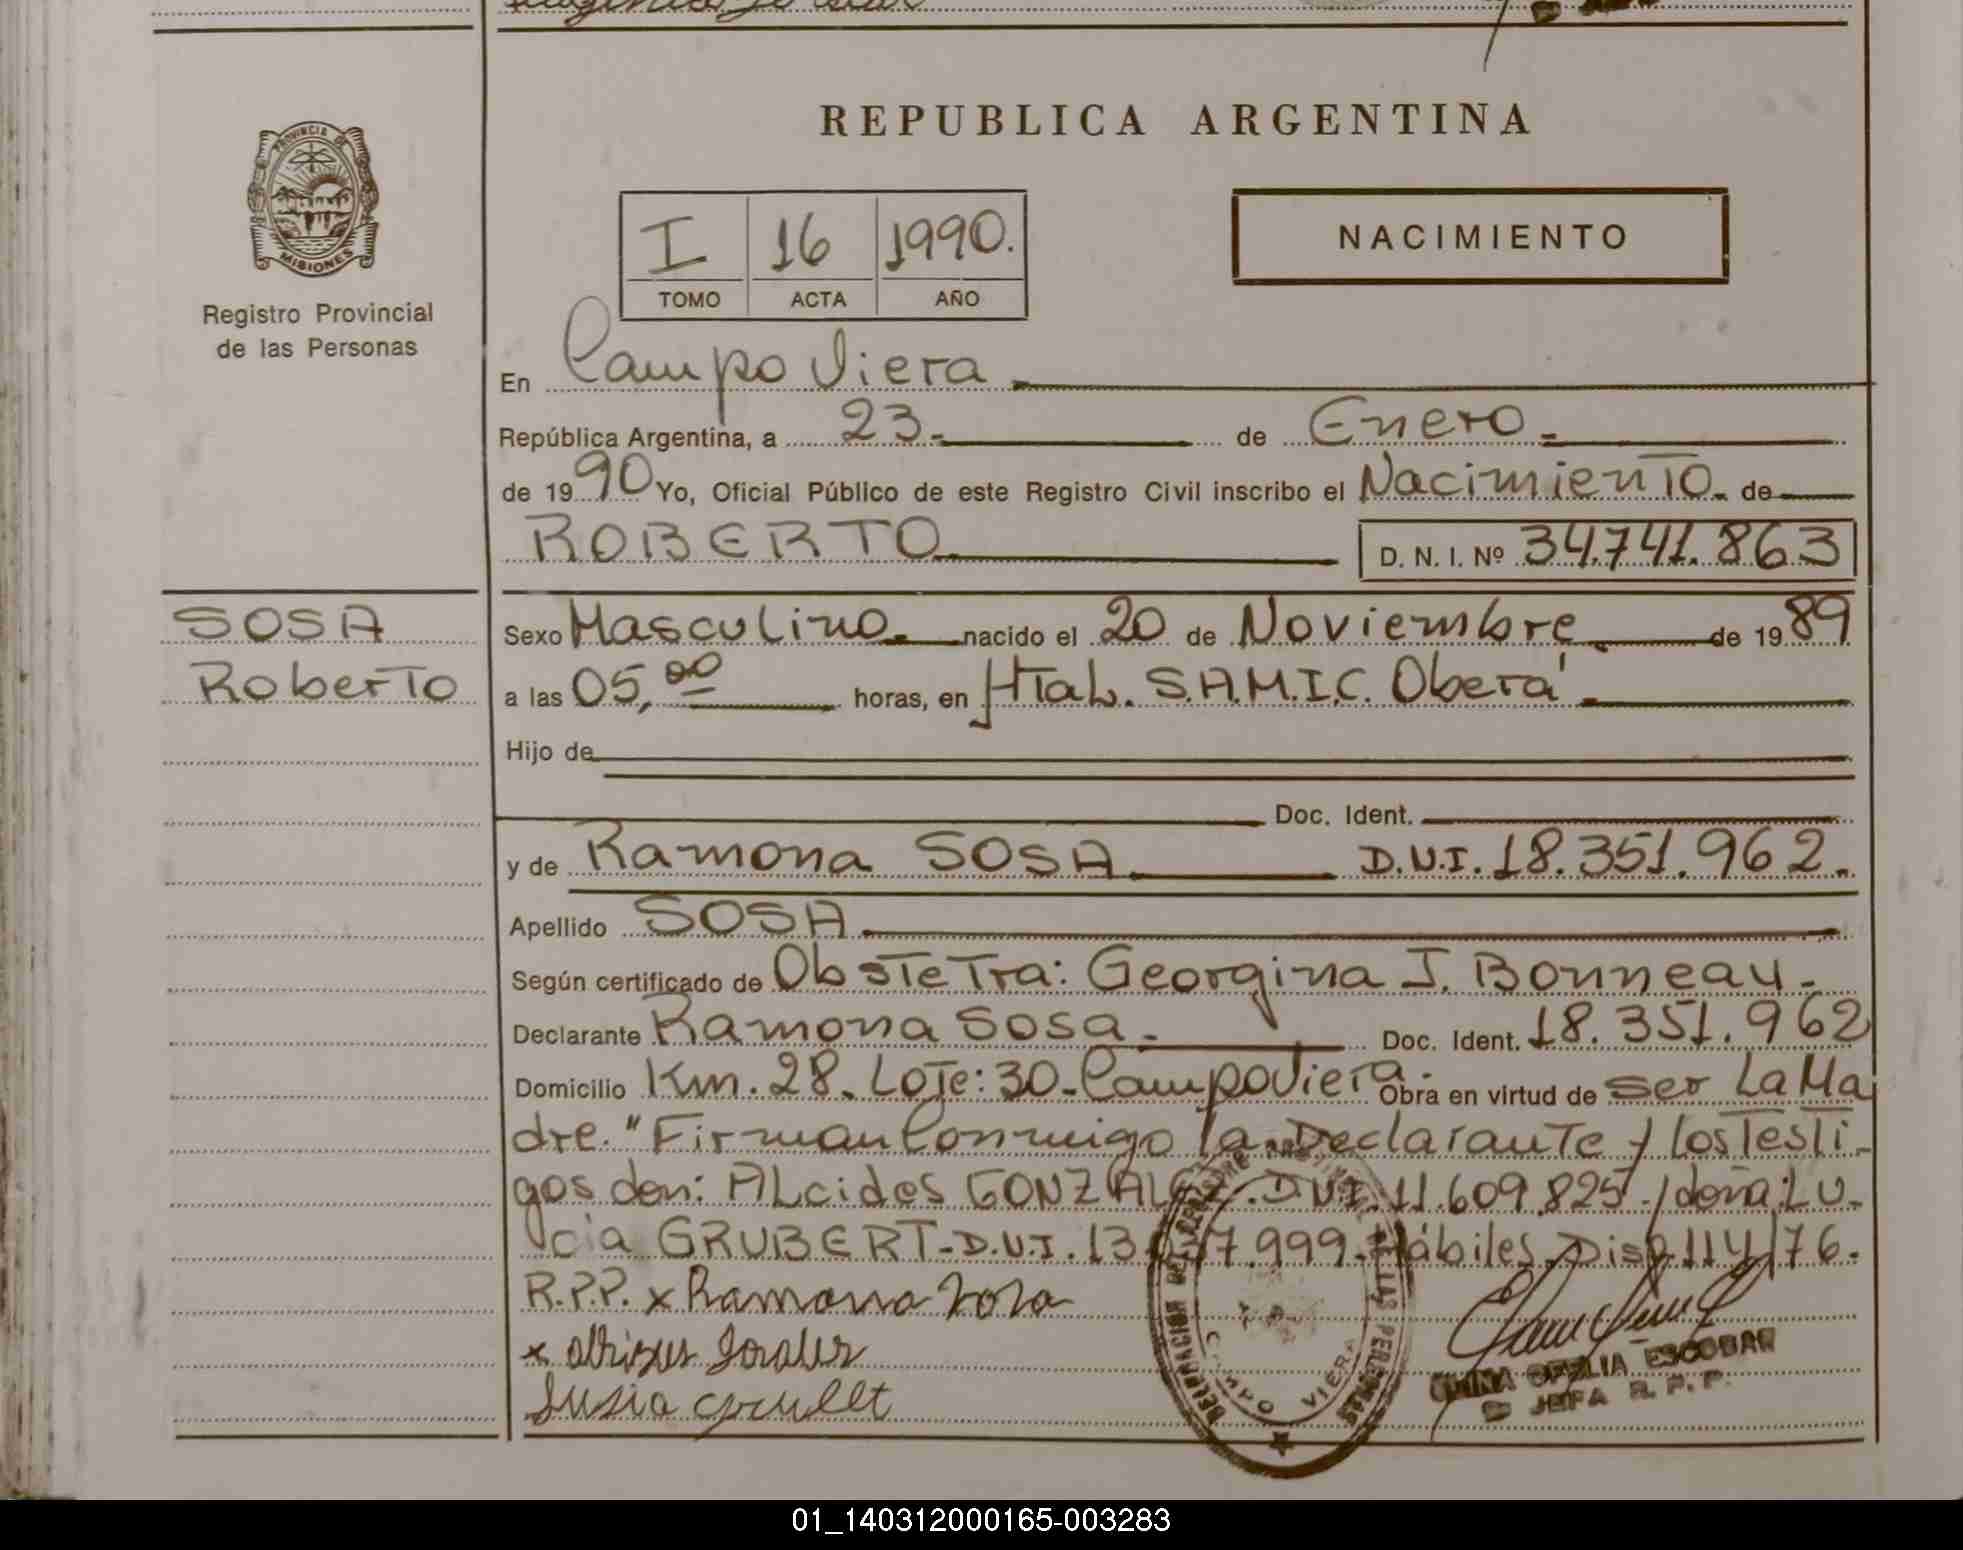 REPUBLICA ARGENTINA
PROVINCIA DE
MISIONES
Registro Provincial
de las Personas
I 16 1990.
TOMO ACTA AÑO
NACIMIENTO
En Campo Viera
República Argentina, a 23.- de Enero.-
de 1990 Yo, Oficial Público de este Registro Civil inscribo el Nacimiento. de
ROBERTO D. N. I. Nº 34.741.863
SOSA
Roberto
Sexo Masculino. nacido el 20 de Noviembre de 1989
a las 05,00 horas, en Htal. S.A.M.I.C. Oberá.
Hijo de
Doc. Ident.
y de Ramona SOSA D.N.I. 18.351.962.
Apellido SOSA
Según certificado de Obstetra: Georgina J. Bonneau.
Declarante Ramona Sosa.- Doc. Ident. 18.351.962
Domicilio Km. 28. Lote: 30-Campo Viera. Obra en virtud de ser La Ma
dre." Firman Conmigo la Declarante y Los Testi-
gos don: ALcides GONZALEZ. D.N.I. 11.609.825-/ doña: Lu-
cia GRUBERT-D.N.I. 13. 7.999-Hábiles Disp. 114/76.
R.P.P. x Ramona Sosa
DELEGACION DEL REGISTRO PROVINCIAL DE LAS PERSONAS
CAMPO VIERA
OFELIA ESCOBAR
JEFA R. P. P.
01_140312000165-003283